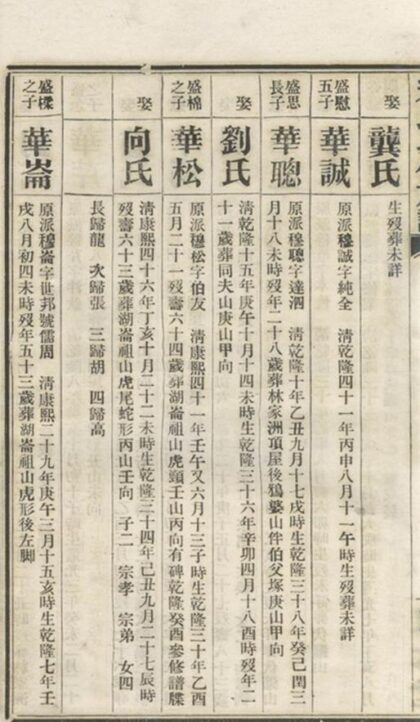 娶 龔氏
生歿葬未詳
盛慰五子 華誠
原派穆誠字純全 清乾隆四十一年丙申八月十一午時生歿葬未詳
盛思長子 華聰
原派穆聰字達泗 清乾隆十年乙丑九月十七戌時生乾隆三十八年癸己閏三
月十八未時歿年二十八歲葬林家洲項屋後鴉婆山伴伯父塚庚山甲向
娶 劉氏
清乾隆十五年庚午十月十四未時生乾隆三十六年辛卯四月十八酉時歿年二
十一歲葬同夫山庚山甲向
盛棉之子 華松
原派穆松字伯友 清康熙四十一年壬午又六月十三子時生乾隆三十年乙酉
五月二十一歿壽六十四歲葬湖崙祖山虎頸壬山丙向有碑乾隆癸酉參修譜牒
娶 向氏
清康熙四十六年丁亥十月二十二未時生乾隆三十四年己丑九月二十七辰時
歿壽六十三歲葬湖崙祖山虎尾蛇形丙山壬向 子二 宗孝 宗弟 女四
長歸龍 次歸張 三歸胡 四歸高
盛檪之子 華崙
原派穆崙字世邦號儒周 清康熙二十九年庚午三月十五亥時生乾隆七年壬
戌八月初四未時歿年五十三歲葬湖崙祖山虎形後左脚